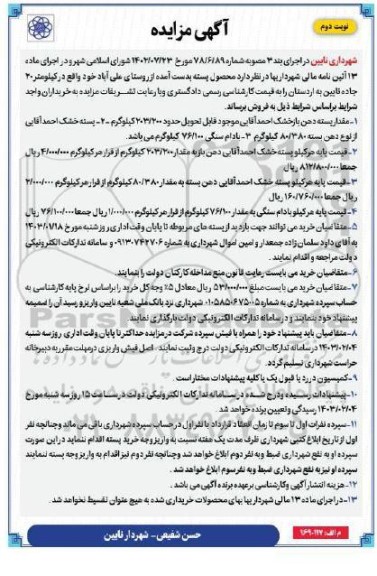 نوبت دوم
آگهی مزایده
شهرداری نایین در اجرای بند ۳ مصوبه شماره ۷۸/۶/۸۹ مورخ ۱۴۰۲/۰۷/۲۳ شورای اسلامی شهر و در اجرای ماده
۱۳ آئین نامه مالی شهرداریها در نظر دارد محصول پسته بدست آمده از روستای علی آباد خود واقع در کیلومتر ۲۰
جاده نایین به اردستان را به قیمت کارشناسی رسمی دادگستری و با رعایت تشریفات مزایده به خریداران واجد
شرایط براساس شرایط ذیل به فروش برساند.
۱- مقدار پسته دهن باز خشک احمدآقایی موجود قابل تحویل حدود ۲۰۳/۲۰۰ کیلوگرم -۲- پسته خشک احمدآقایی
از نوع دهن بسته ۸۰/۳۸۰ کیلوگرم ۳- بادام سنگی ۷۶/۱۰۰ کیلوگرم می باشد.
۲- قیمت پایه هر کیلو پسته خشک احمدآقایی دهن باز به مقدار ۲۰۳/۲۰۰ کیلوگرم از قرار هر کیلوگرم ۴/۰۰۰/۰۰۰ ریال
جمعا ۸۱۲/۸۰۰/۰۰۰ ریال
۳- قیمت پایه هر کیلو پسته خشک احمدآقایی دهن بسته به مقدار ۸۰/۳۸۰ کیلوگرم از قرار هر کیلوگرم ۲/۰۰۰/۰۰۰
ریال جمعا ۱۶۰/۷۶۰/۰۰۰ ریال
۴- قیمت پایه هر کیلو بادام سنگی به مقدار ۷۶/۱۰۰ کیلوگرم از قرار هر کیلوگرم ۱/۰۰۰/۰۰۰ ریال جمعا ۷۶/۱۰۰/۰۰۰ ریال
۵- متقاضیان خرید می توانند جهت بازدید از پسته های مربوطه تا پایان وقت اداری روز شنبه مورخ ۱۴۰۳/۰۱/۱۸
به آقای داود سلمان زاده جمعدار و امین اموال شهرداری به شماره ۰۹۱۳۰۷۴۲۷۰۶ و سامانه تدارکات الکترونیکی
دولت مراجعه و اقدام نمایند.
۶- متقاضیان خرید می بایست رعایت قانون منع مداخله کارکنان دولت را بنمایند.
۷- متقاضیان خرید می بایست مبلغ ۵۳/۰۰۰/۰۰۰ ریال معادل ۵٪ وجه کل خرید را براساس نرخ پایه کارشناسی به
حساب سپرده شهرداری به شماره ۰۱۰۵۸۵۰۶۷۵۰۰۵ شهرداری نزد بانک ملی شعبه نایین واریز و رسید آن را ضمیمه
پیشنهاد خود بنمایند و در سامانه تدارکات الکترونیکی دولت بارگذاری نمایند
۸- متقاضیان باید پیشنهاد خود را همراه با فیش سپرده شرکت در مزایده حداکثر تا پایان وقت اداری روز سه شنبه
۱۴۰۳/۰۲/۰۴ در سامانه تدارکات الکترونیکی دولت درج و ثبت نمایند. اصل فیش واریزی در مهلت مقرر به دبیرخانه
حراست شهرداری تسلیم گردد.
۹- کمیسیون در رد یا قبول یک یا کلیه پیشنهادات مختار است.
۱۰- پیشنهادات رسیده و درج شده در سامانه تدارکات الکترونیکی دولت در ساعت ۱۵ روز سه شنبه مورخ
۱۴۰۳/۰۲/۰۴ رسیدگی و تعیین برنده خواهد شد.
۱۱- سپرده نفرات اول تا سوم تا زمان انعقاد قرارداد با نفر اول در حساب سپرده شهرداری باقی می ماند و چنانچه نفر
اول از تاریخ ابلاغ کتبی شهرداری ظرف مدت یک هفته نسبت به واریز وجه خرید پسته اقدام ننماید در این صورت
سپرده او به نفع شهرداری ضبط و به نفر دوم ابلاغ خواهد شد و چنانچه نفر دوم نیز اقدام به واریز وجه پسته ننمایند
سپرده او نیز به نفع شهرداری ضبط و به نفر سوم ابلاغ خواهد شد.
۱۲- هزینه انتشار آگهی و کارشناسی برعهده برنده آگهی می باشد.
۱۳- در اجرای ماده ۱۳ مالی شهرداریها بهای محصولات خریداری شده به هیچ عنوان تقسیط نخواهد شد.
حسن شفیعی- شهردار نایین
م الف: ۱۶۹۰۱۱۷